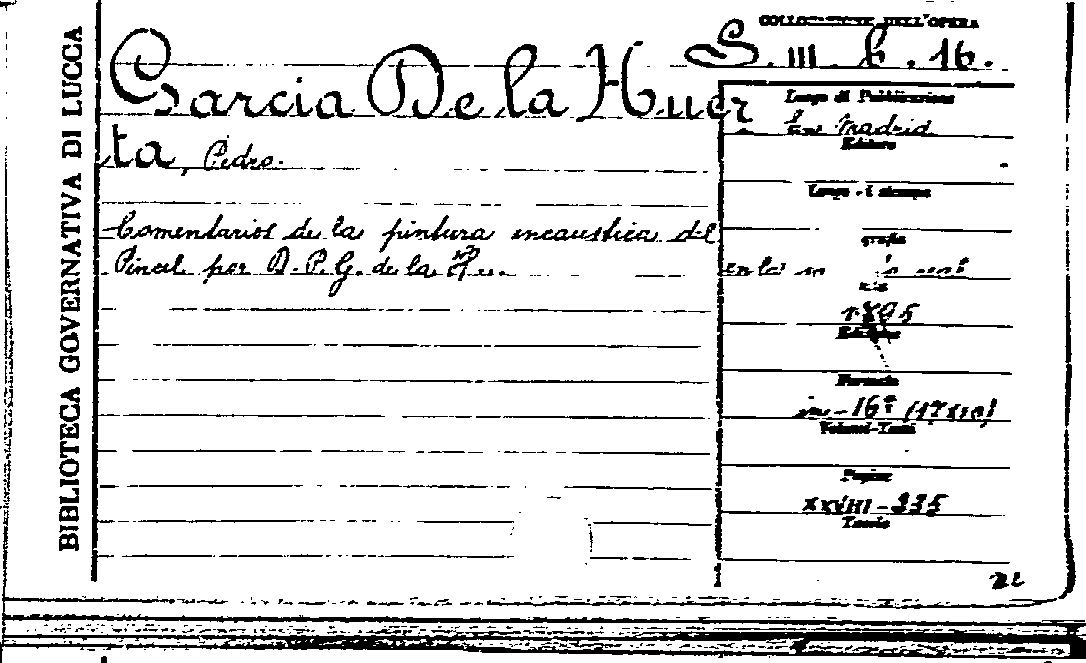 BIBLIOTECA GOVERNATIVA DI LUCCA
COLLOCAZIONE DELL'OPERA
S. III. b. 16.
Garcia De la Huer
ta, Pedro.
Comentarios de la pintura encaustica del
Pincel por D. P. G. de la Hu.
Luogo di Pubblicazione
En Madrid
Editore
Luogo di stampa
grafia
en la
1795
Edizione
Formato
in-16º (17x10)
Volumi-Tomi
Pagine
XXVIII-335
Tavole